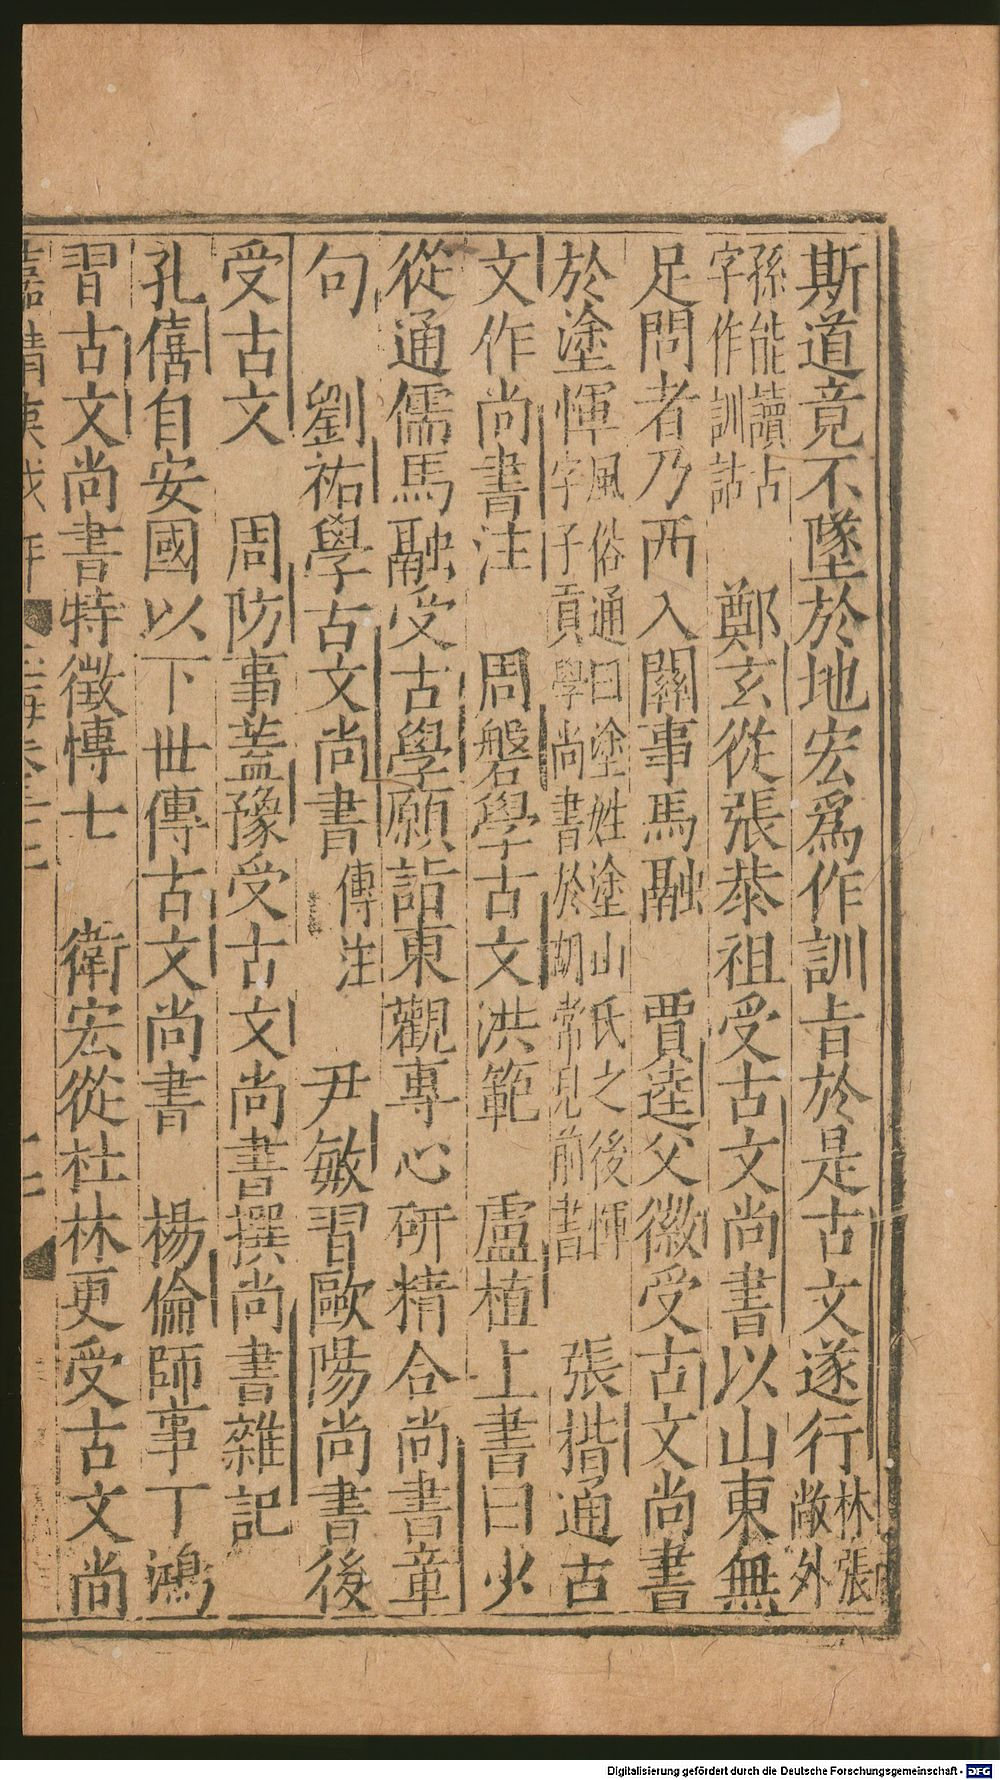 斯道竟不墜於地宏爲作訓㫖於是古文遂行林張敞外
孫能讀古字作訓詁　鄭玄從張恭祖受古文尚書以山東無
足問者乃西入關事馬融　賈逵父徽受古文尚書
於塗惲風俗通曰塗姓塗山氏之後惲字子貢學尚書於胡常見前書　張揩通古
文作尚書注　周磐學古文洪範　盧植上書曰少
從通儒馬融受古學願詣東觀專心研精合尚書章
句　劉祐學古文尚書傳注　尹敏習歐陽尚書後
受古文　周防事蓋豫受古文尚書撰尚書雜記
孔僖自安國以下丗傳古文尚書　楊倫師事丁鴻
習古文尚書特徵博士　衛宏從杜林更受古文尚
嘉靖庚戌年
Digitalisierung gefördert durch die Deutsche Forschungsgemeinschaft - DFG